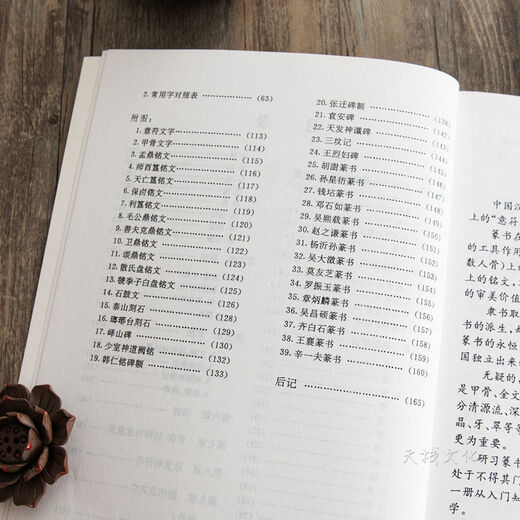 2. 常用字对照表 …………… (63)
附图：
1. 意符文字 …………… (113)
2. 甲骨文字 …………… (114)
3. 盂鼎铭文 …………… (115)
4. 师酉簋铭文 …………… (116)
5. 天亡簋铭文 …………… (117)
6. 保卣铭文 …………… (118)
7. 利簋铭文 …………… (119)
8. 毛公鼎铭文 …………… (120)
9. 善夫克鼎铭文 …………… (121)
10. 卫鼎铭文 …………… (122)
11. 颂鼎铭文 …………… (123)
12. 散氏盘铭文 …………… (124)
13. 虢季子白盘铭文 …………… (125)
14. 石鼓文 …………… (126)
15. 泰山刻石 …………… (127)
16. 瑯琊台刻石 …………… (129)
17. 峄山碑 …………… (130)
18. 少室神道阙铭 …………… (132)
19. 韩仁铭碑额 …………… (133)
20. 张迁碑额 …………… (138)
21. 袁安碑 …………… (139)
22. 天发神谶碑 …………… (140)
23. 三坟记 …………… (142)
24. 王烈妇碑 …………… (144)
25. 胡澍篆书 …………… (145)
26. 孙星衍篆书 …………… (146)
27. 钱坫篆书 …………… (147)
28. 邓石如篆书 …………… (148)
29. 吴熙载篆书 …………… (149)
30. 赵之谦篆书 …………… (151)
31. 杨沂孙篆书 …………… (152)
32. 吴大澂篆书 …………… (153)
33. 莫友芝篆书 …………… (154)
34. 罗振玉篆书 …………… (155)
35. 章炳麟篆书 …………… (156)
36. 吴昌硕篆书 …………… (157)
37. 齐白石篆书 …………… (158)
38. 王襄篆书 …………… (159)
39. 辛一夫篆书 …………… (160)
后记 …………… (165)
中国汉
上的“意符
篆书在
的工具作用
数人骨）上
上的铭文，
的审美价值
隶书取
书的派生，
篆书的永恒
国独立出来
无疑的，
是甲骨、金文
分清源流、深
晶、牙、翠等
更为重要。
研习篆书
处于不得其门
一册从入门知
学。
天骄文化